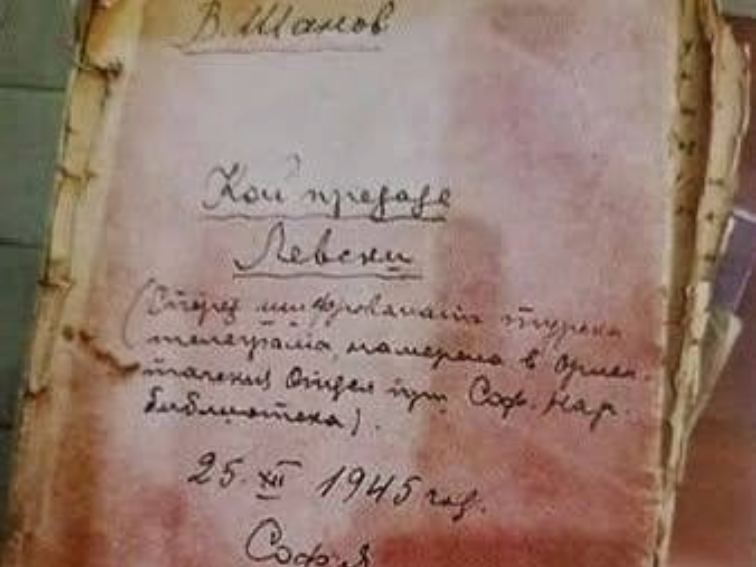 В. Шанов
Кой предаде
Левски
(Според шифрованата турска
телеграма, намерена в Ориен-
талския отдел при Соф. Нар.
библиотека).
25. XII 1945 год.
София